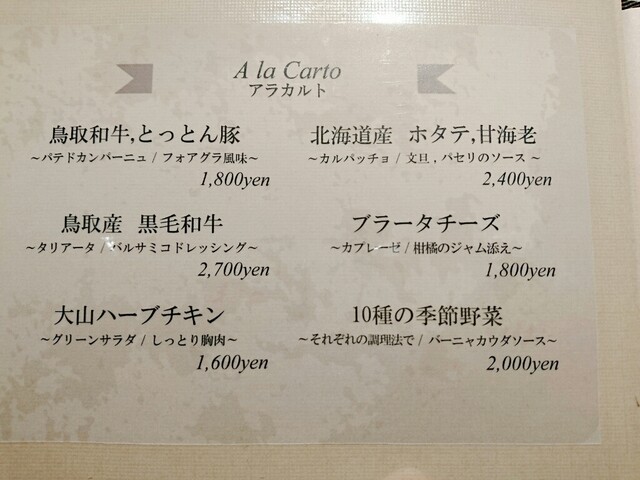 A la Carto
アラカルト
鳥取和牛,とっとん豚
～パテドカンパーニュ / フォアグラ風味～
1,800yen
鳥取産 黒毛和牛
～タリアータ / バルサミコドレッシング～
2,700yen
大山ハーブチキン
～グリーンサラダ / しっとり胸肉～
1,600yen
北海道産 ホタテ,甘海老
～カルパッチョ / 文旦 , パセリのソース ～
2,400yen
ブラータチーズ
～カプレーゼ / 柑橘のジャム添え～
1,800yen
10種の季節野菜
～それぞれの調理法で / バーニャカウダソース～
2,000yen